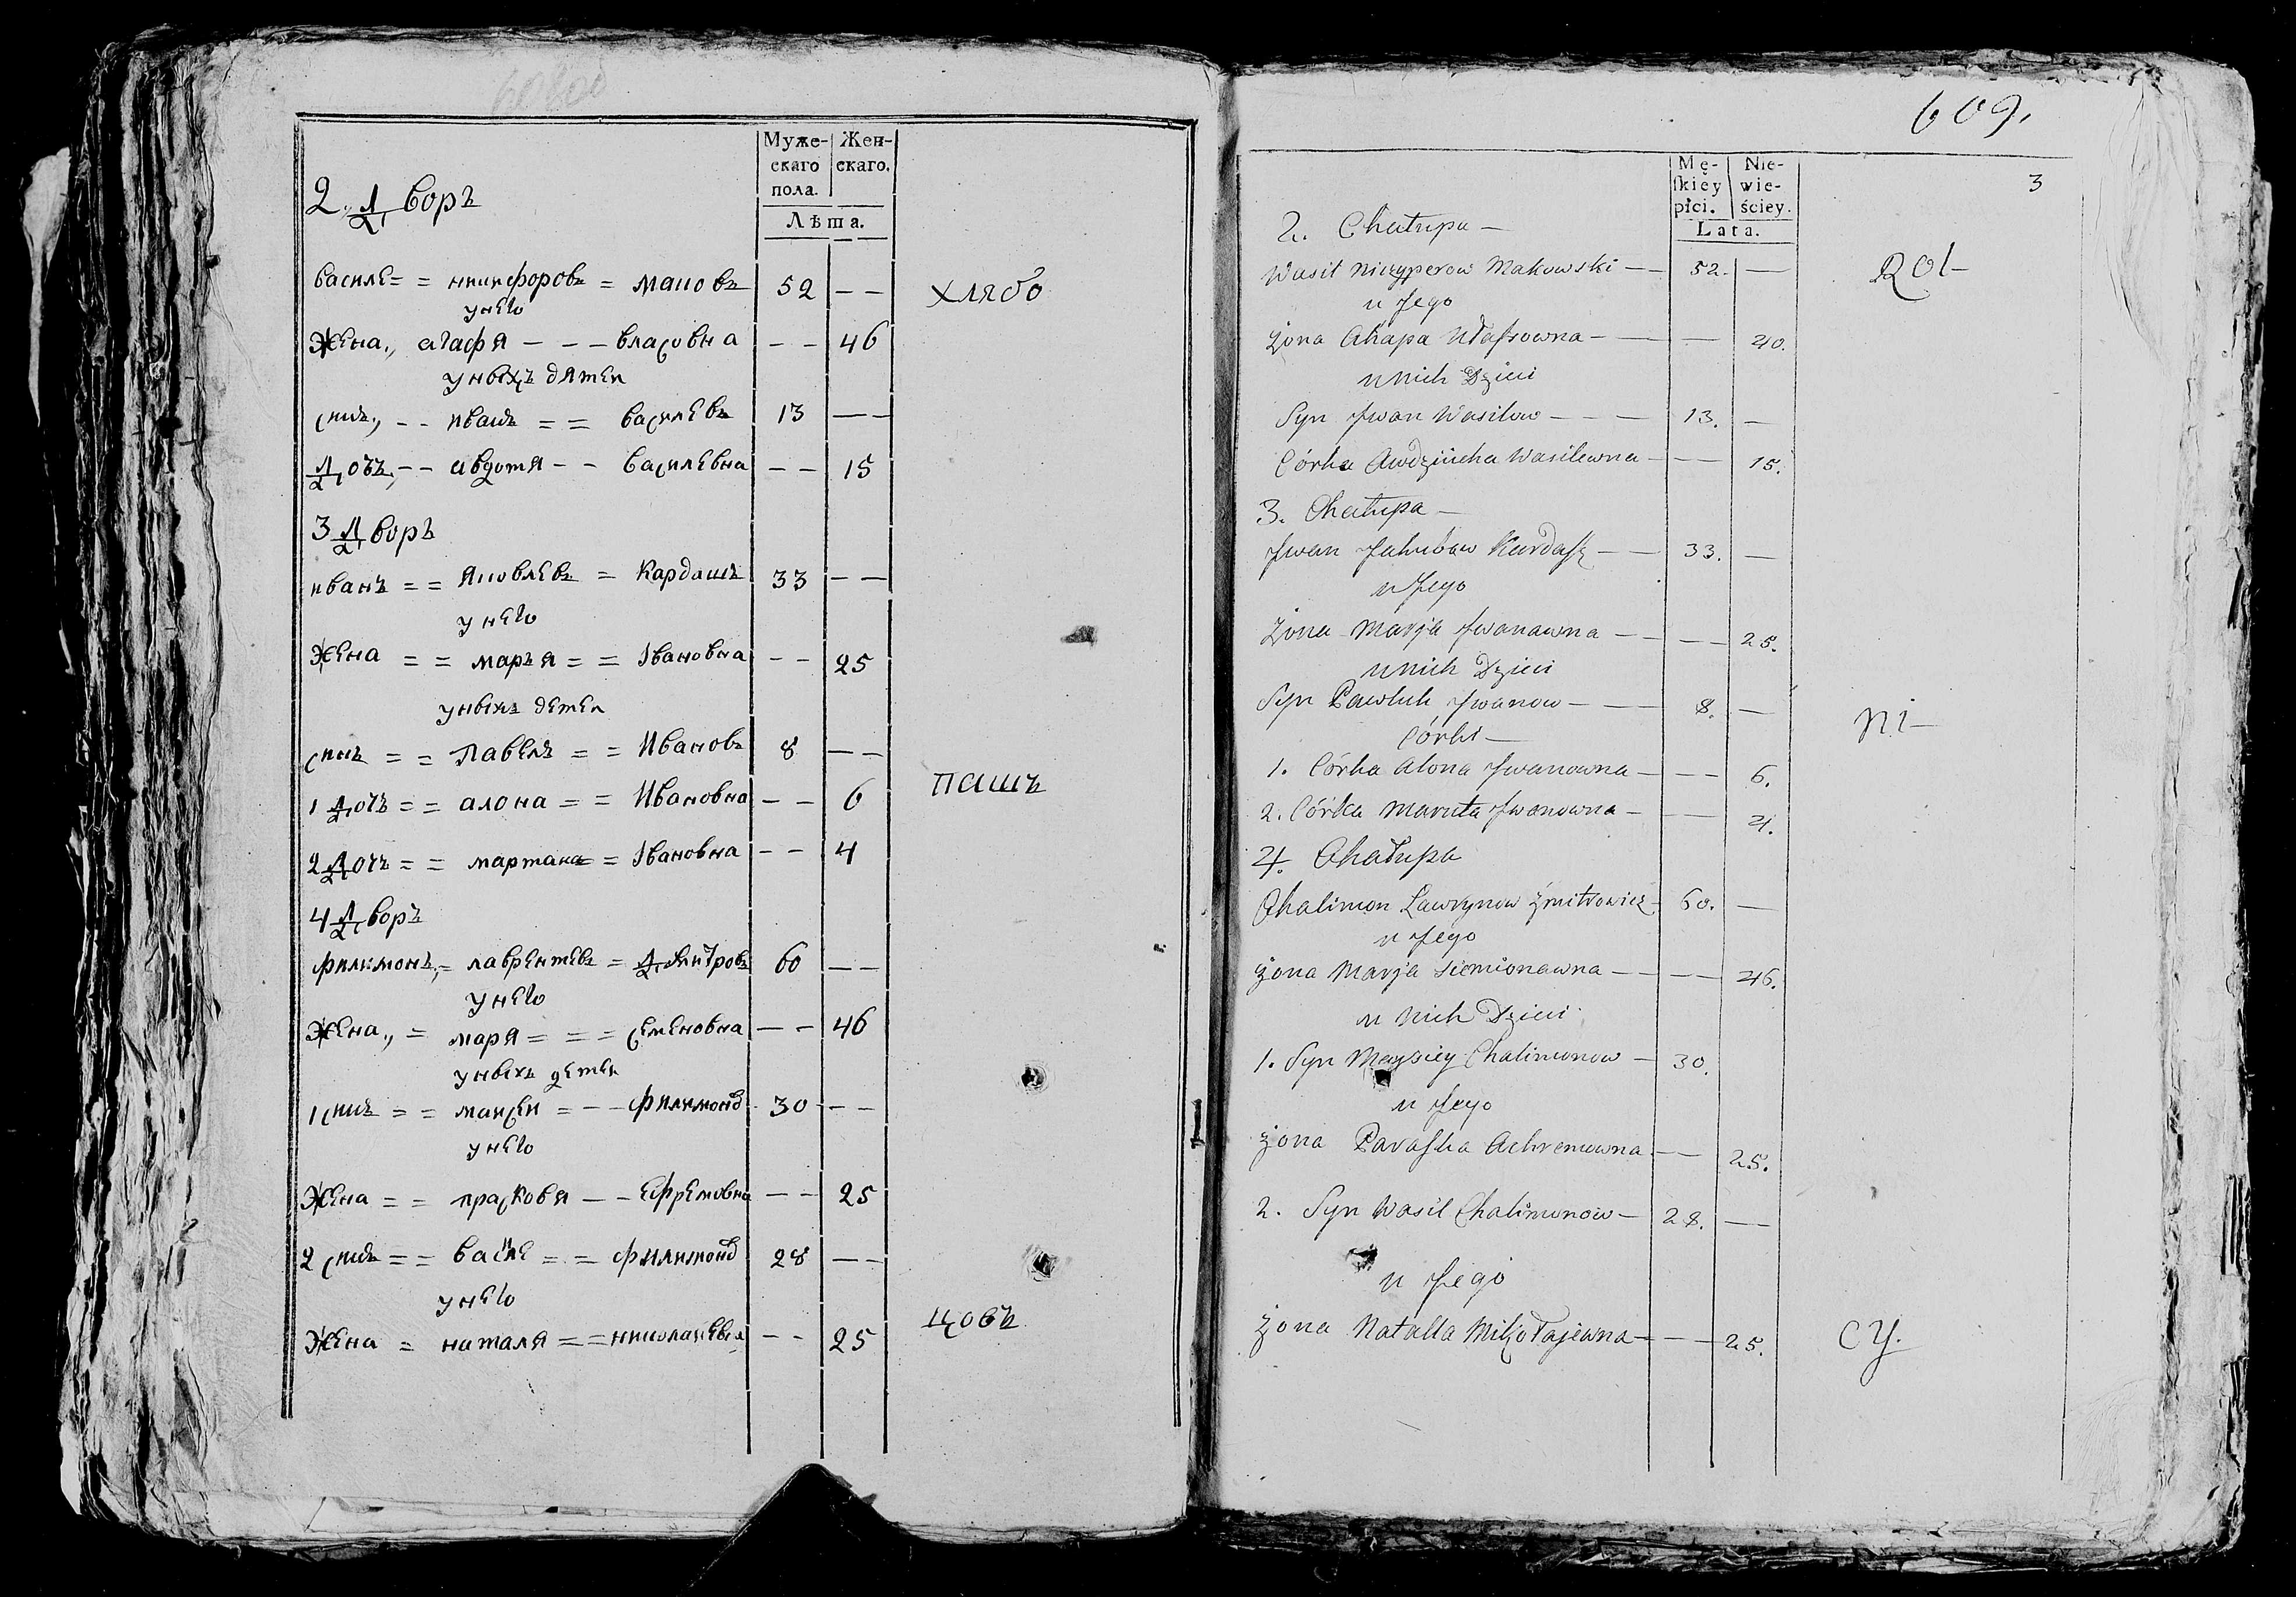 Муже-
скаго
пола.
Жен-
скаго.
Лѣта.
2. Дворъ
василе = = никифоровъ = маковъ 52 — —
унего
Жена., агафя — — — власовна — — 46
уныхъ дятеи
сынъ, — — иванъ = = василевъ 13 — —
Дочъ, — — авдотя — — василевна — — 15
хлябо
3 Дворъ
иванъ = = яковлевъ = Кардашъ 33 — —
унего
Жена = = маръя = = Iвановна — — 25
уныхъ детеи
сынъ = = Павелъ = = Ивановъ 8 — —
1 Дочъ = = алона = = Ивановна — — 6
пашъ
2 Дочъ = = мартана = Iвановна — — 4
4 Дворъ
филимонъ, = лаврентевъ = Дмитровъ 60 — —
унего
Жена., = маря = = = семеновна — — 46
уныхъ детеи
1 сынъ = = максеи = — — филимоно 30 — —
унего
Жена = = прасковя — — ефремовна — — 25
2 сынъ = = василе = = филимоно 28 — —
унего
Жена = наталя = = николаиевна — — 25
цовъ
609.
3
Mę-
ſkiey
płci.
Nie-
wie-
ściey.
Lata.
2. Chałupa —
Wasil Niczyperow Makowski — — 52. —
u Jego
żona Ahapa Ułaſsowna — — — 40.
u nich Dzieci
Syn Jwan Wasilow — — — 13. —
Córka Awdziucha Wasilewna — — 15.
Rol—
3. Chałupa —
Jwan Jakubow Kardaſz — — 33. —
u Jego
Żona Marja Jwanawna — — — 25.
u nich Dzieci
Syn Pawluk Jwanow — — — 8. —
Córki —
ni—
1. Córka Alona Jwanowna — — — 6.
2. Córka Maruta Jwanowna — — 4.
4. Chałupa
Chalimon Ławrynow Żmitrowicz 60. —
u Jego
żona Marja Siemionawna — — — 46.
u nich Dzieci
1. Syn Maysiey Chalimonow — 30.
u Jego
żona Paraſka Achremowna — — 25.
2. Syn Wasil Chalimonow — 28. —
u Jego
żona Natalla Mikołajewna — — — 25.
cy.